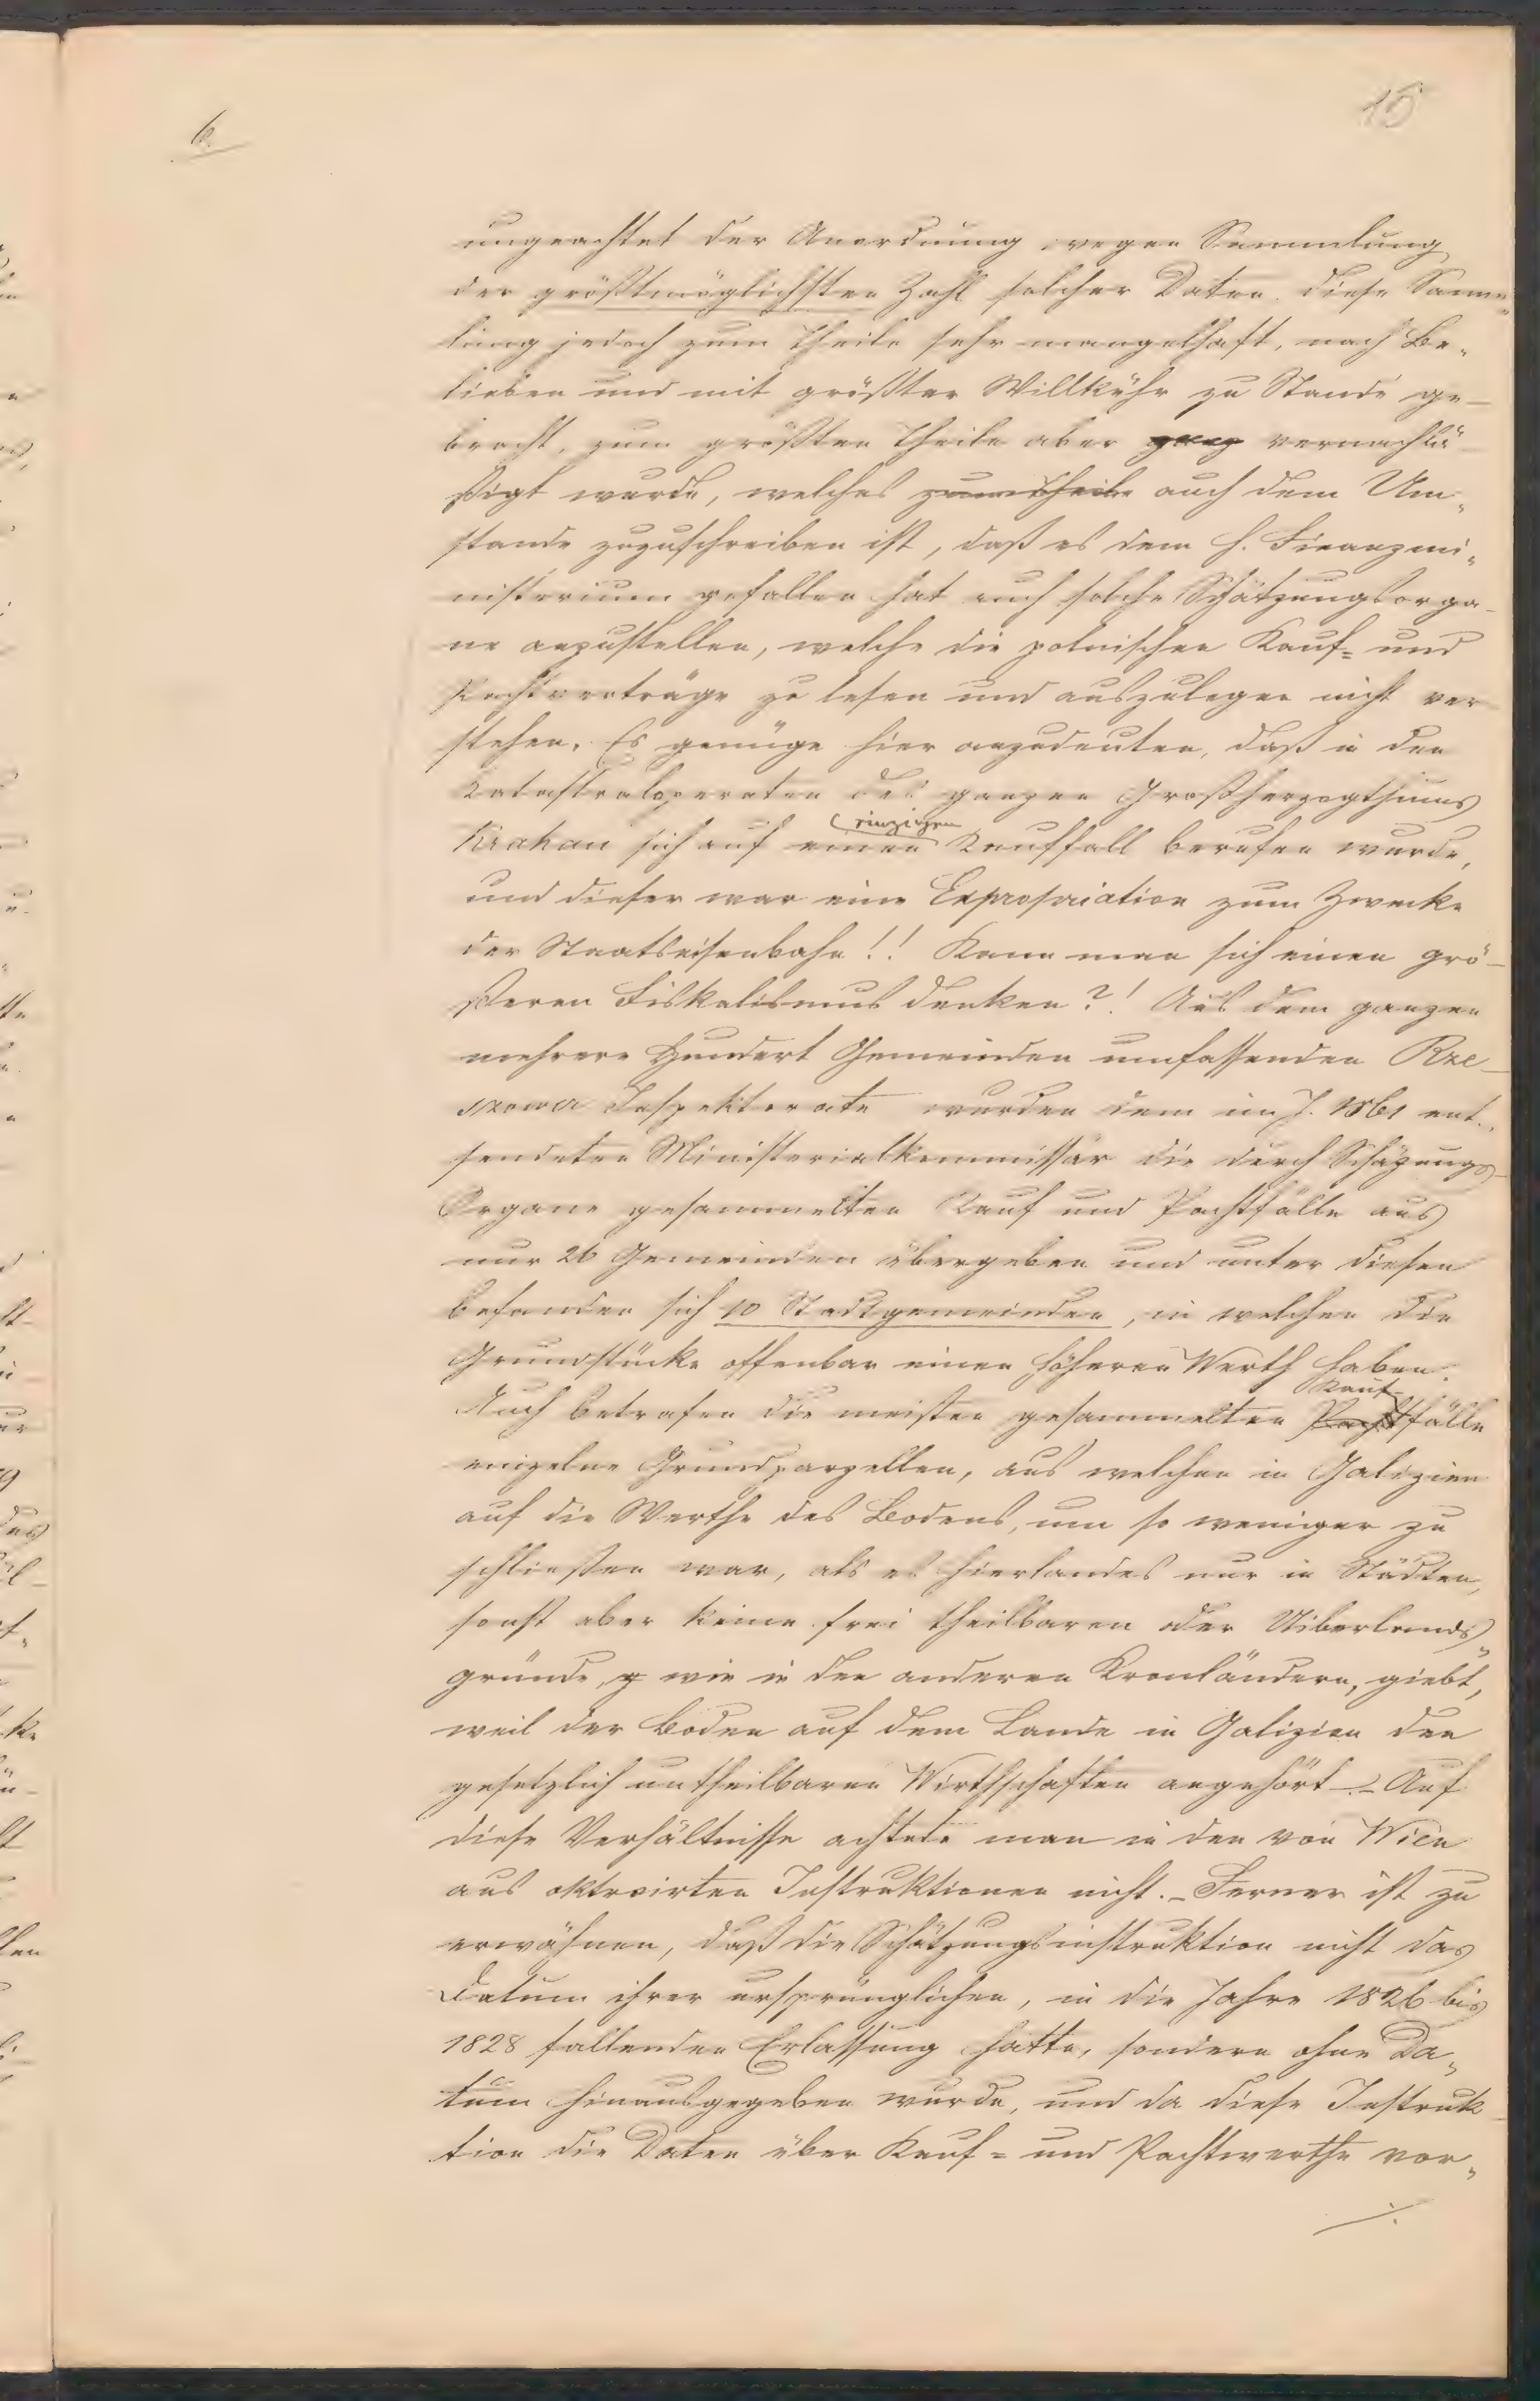 6.
15
ungeachtet der Anordnung wegen Sammlung
der größtmöglichsten Zahl solcher Daten, diese Samm„
lung jedoch zum Theile sehr mangelhaft, nach Be„
lieben und mit größter Willkühr zu Stande ge-
bracht, zum größten Theile aber ganz vernachlä-
ßigt wurde, welches zum Theile auch dem Um„
stande zuzuschreiben ist, daß es dem h. Finanzmi„
nisterium gefallen hat auch solche Schätzungsorga-
ne anzustellen, welche die polnischen Kauf= und
Pachtverträge zu lesen und auszulegen nicht ver
stehen. Es genüge hier anzudeuten, daß in den
Katastraloperaten des ganzen Großherzogthums
einzigen
Krakau sich auf einen Kauffall berufen wurde,
und dieser war eine Expropriation zum Zwecke
der Staatseisenbahn!! Kann man sich einen grö-
ßeren Fiskalismus denken?! Aus dem ganzen
mehrere Hundert Gemeinden umfassenden Rze-
szower Inspektorate wurden dem im J. 1861 ent„
sendeten Ministerialkommissär die durch Schäzungs-
Organe gesammelten Kauf und Pachtfälle aus
nur 26 Gemeinden übergeben und unter diesen
befanden sich 10 Stadtgemeinden, in welchen die
Grundstücke offenbar einen höheren Werth haben.
Kauf-
Auch betrafen die meisten gesammelten Pachtfälle
einzelne Grundparzellen, aus welchen in Galizien
auf die Werthe des Bodens, um so weniger zu
schließen war, als es hierlandes nur in Städten,
sonst aber keine frei theilbaren oder Uiberlands„
gründe, wie in den anderen Kronländern, giebt,
weil der Boden auf dem Lande in Galizien den
gesetzlich untheilbaren Wirthschaften angehört. - Auf
diese Verhältnisse achtete man in den von Wien
aus oktroirten Instruktionen nicht. - Ferner ist zu
erwähnen, daß die Schätzungsinstruktion nicht das
Datum ihrer ursprünglichen, in die Jahre 1826 bis
1828 fallenden Erlassung hatte, sondern ohne Da„
tum hinausgegeben wurde, und da diese Instruk
tion die Daten über Kauf= und Pachtwerthe vor„
./.